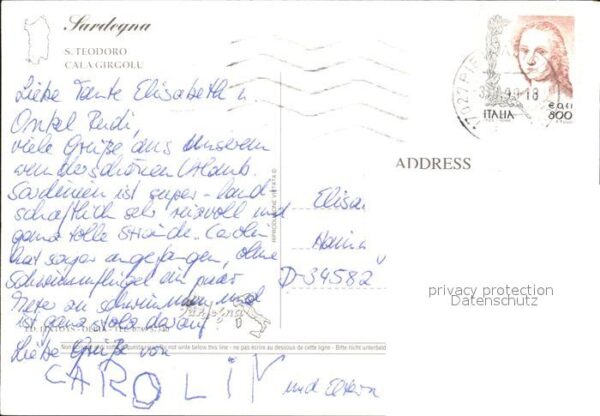 Sardegna
S. TEODORO
CALA GIRGOLU
Liebe Tante Elisabeth u.
Onkel Rudi,
viele Grüße aus unserem
wunderschönen Urlaub.
Sardinien ist super - land
schaftlich sehr reizvoll und
ganz tolle Strände. Carolin
hat sogar angefangen, ohne
Schwimmflügel ein paar
Meter zu schwimmen und
ist ganz stolz darauf
Liebe Grüße von
CAROLIN und Eltern
RIPRODUZIONE VIETATA
Sardegna
Non scrivere write below this line - ne pas écrire au dessous de cette ligne - Bitte nicht unterhalb
ITALIA
€ 0,41
800
ADDRESS
Elisa
Hanna
D-34582
privacy protection
Datenschutz